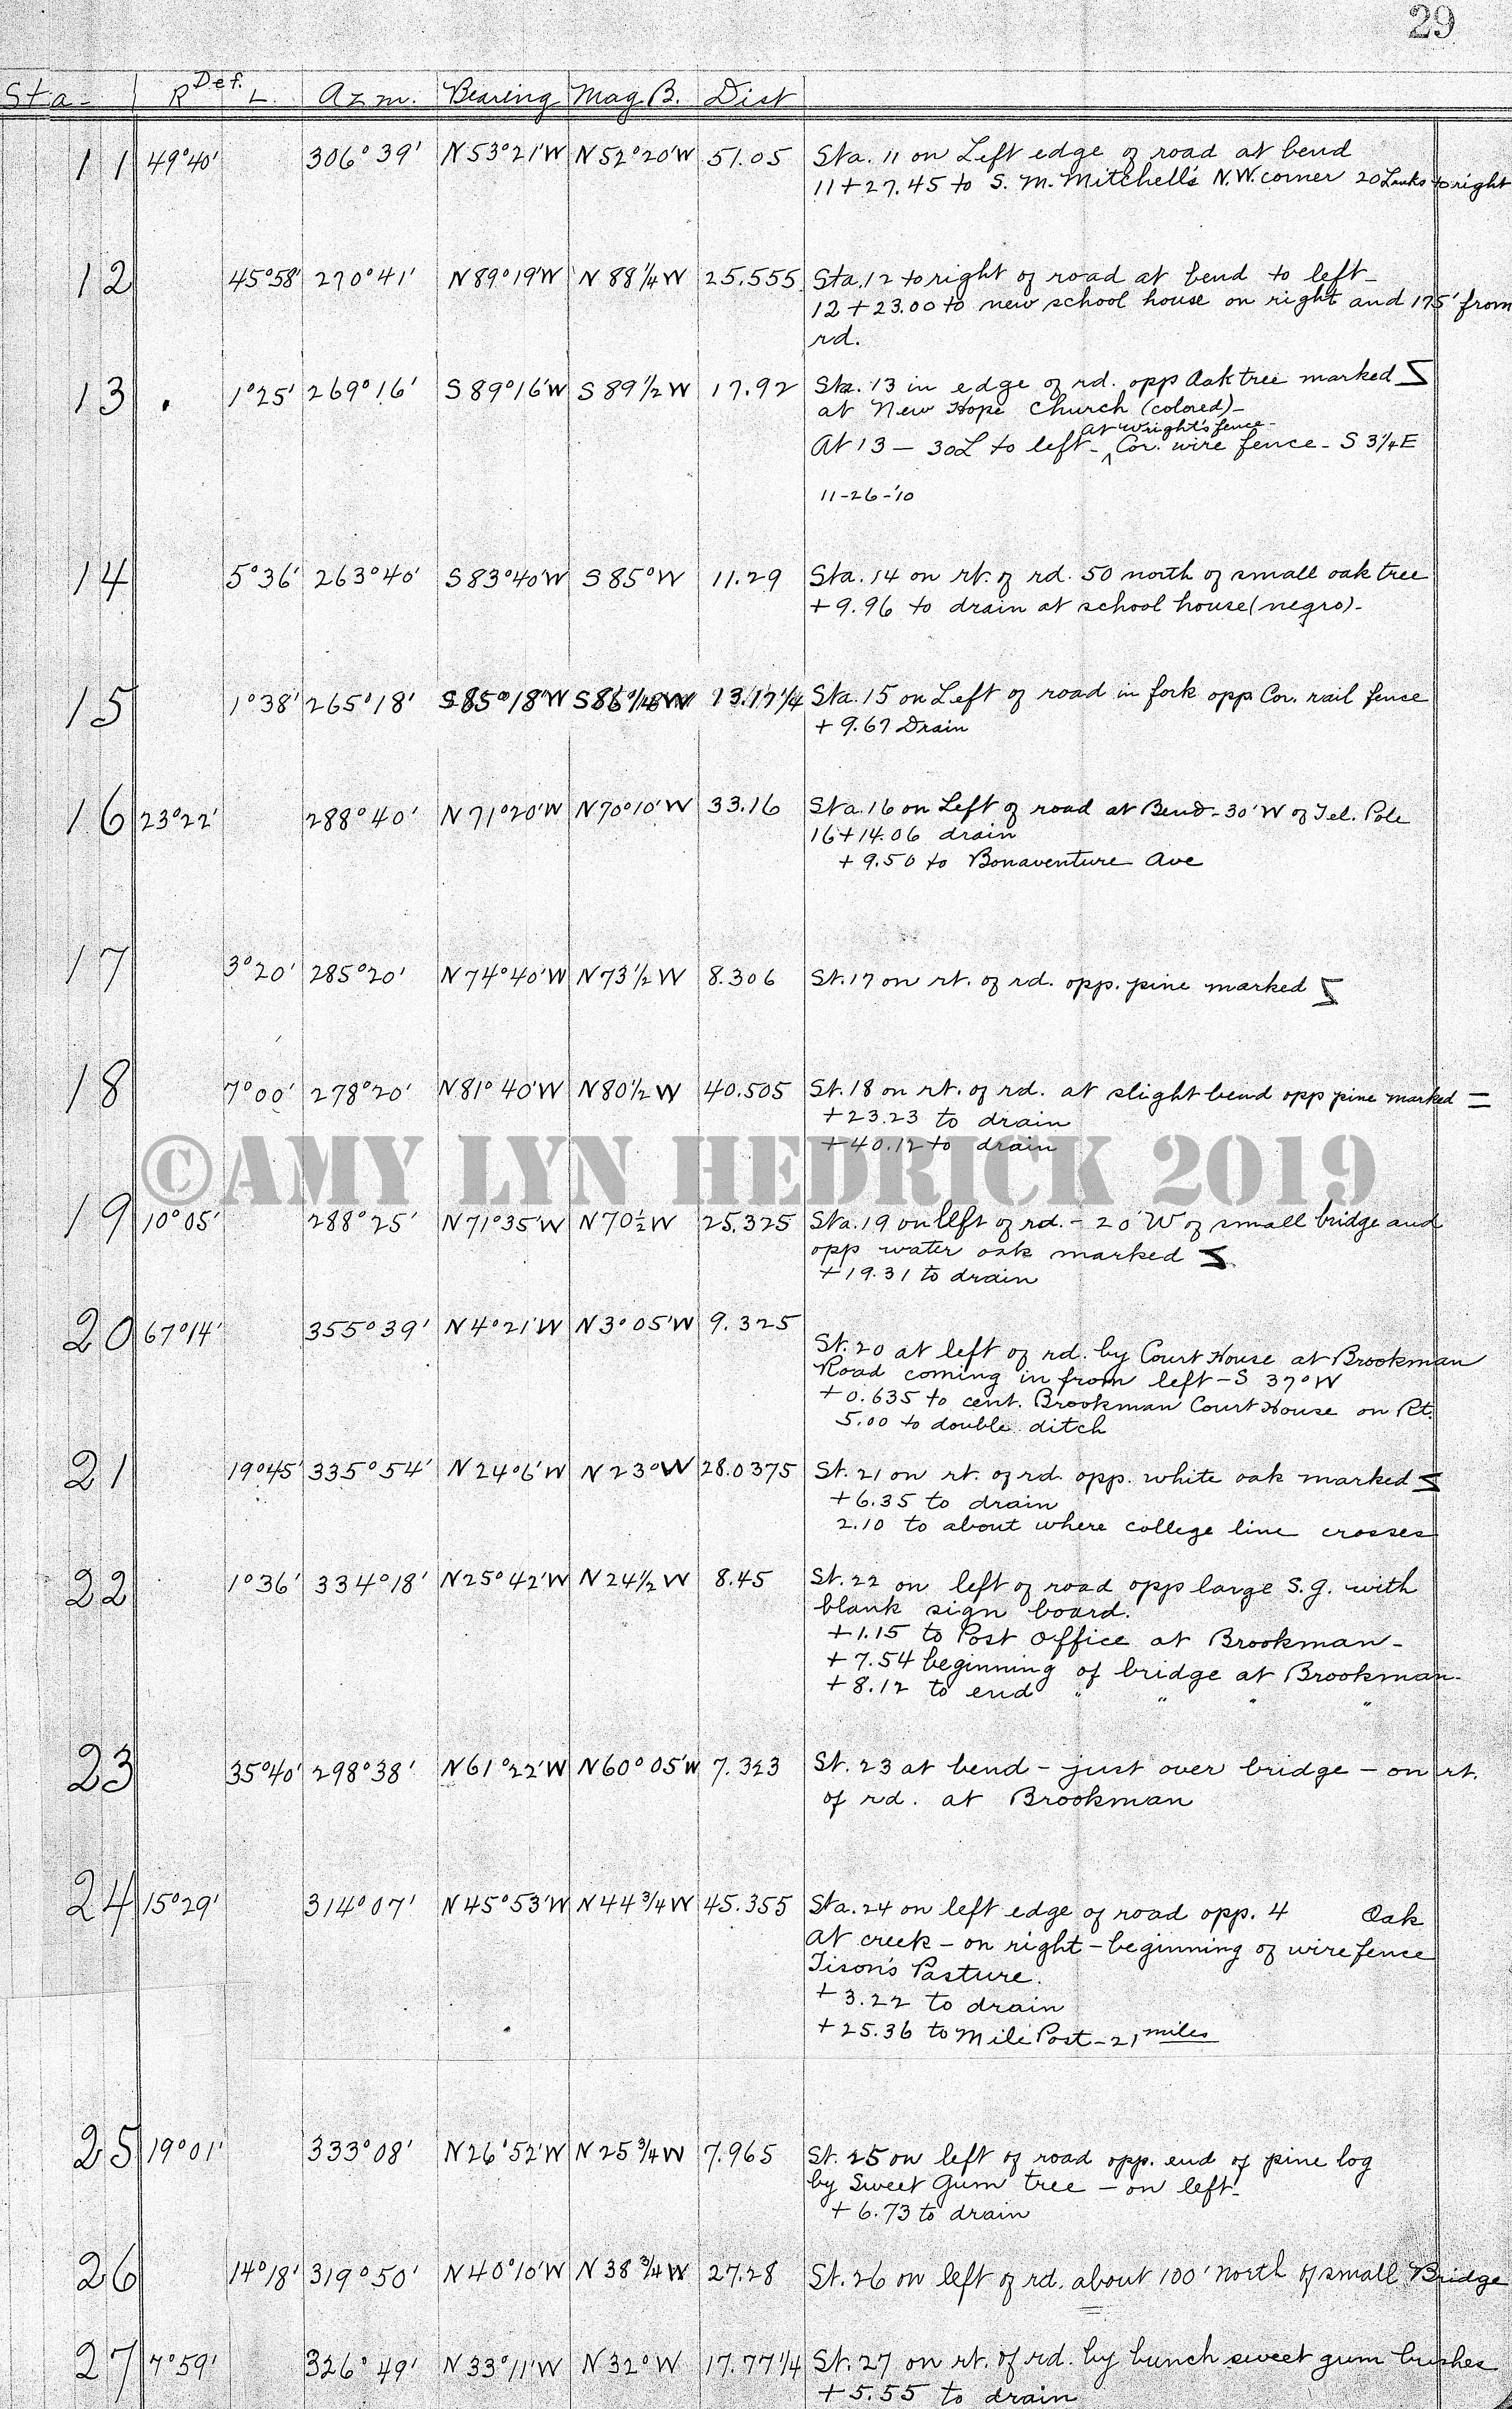 29
Sta- R Def. L. Azm. Bearing Mag B. Dist
11 49°40' 306°39' N53°21'W N52°20'W 51.05 Sta. 11 on Left edge of road at bend
11+27.45 to S. M. Mitchell's N.W. corner 20 Links to right
12 45°58' 270°41' N89°19'W N 88 1/4 W 25.555 Sta. 12 to right of road at bend to left-
12 + 23.00 to new school house on right and 175' from
rd.
13 1°25' 269°16' S89°16'W S 89 1/2 W 17.92 Sta. 13 in edge of rd. opp Oak tree marked
at New Hope Church (colored)-
at Wright's fence-
At 13 - 30L to left- ^ Cor. wire fence - S 3 1/4 E
11-26-'10
14 5°36' 263°40' S83°40'W S85°W 11.29 Sta. 14 on rt. of rd. 50 north of small oak tree
+ 9.96 to drain at school house (negro)-
15 1°38' 265°18' S85°18'W 13.17 1/4 Sta. 15 on Left of road in fork opp Cor. rail fence
+ 9.67 Drain
16 23°22' 288°40' N71°20'W N70°10'W 33.16 Sta. 16 on Left of road at Bend - 30' W of Tel. Pole
16+14.06 drain
+ 9.50 to Bonaventure Ave
17 3°20' 285°20' N74°40'W N73 1/2 W 8.306 St. 17 on rt. of rd. opp. pine marked
18 7°00' 278°20' N81°40'W N80 1/2 W 40.505 St. 18 on rt. of rd. at slight bend opp pine marked =
+23.23 to drain
+40.12 to drain
©AMY LYN HEDRICK 2019
19 10°05' 288°25' N71°35'W N70 1/2 W 25.325 Sta. 19 on left of rd. - 20' W of small bridge and
opp water oak marked
+19.31 to drain
20 67°14' 355°39' N4°21'W N3°05'W 9.325
St. 20 at left of rd. by Court House at Brookman
Road coming in from left - S 37° W
+ 0.635 to cent. Brookman Court House on Rt.
5.00 to double ditch
21 19°45' 335°54' N24°6'W N23°W 28.0375 St. 21 on rt. of rd. opp. white oak marked
+6.35 to drain
2.10 to about where college line crosses
22 1°36' 334°18' N25°42'W N24 1/2 W 8.45 St. 22 on left of road opp large S.g. with
blank sign board.
+1.15 to Post Office at Brookman-
+ 7.54 beginning of bridge at Brookman-
+ 8.12 to end " " " "
23 35°40' 298°38' N61°22'W N60°05'W 7.323 St. 23 at bend - just over bridge - on rt.
of rd. at Brookman
24 15°29' 314°07' N45°53'W N44 3/4 W 45.355 Sta. 24 on left edge of road opp. 4 Oak
at creek - on right - beginning of wire fence
Tison's Pasture.
+ 3.22 to drain
+ 25.36 to Mile Post - 21 miles
25 19°01' 333°08' N26°52'W N25 3/4 W 7.965 St. 25 on left of road opp. end of pine log
by Sweet Gum tree - on left-
+ 6.73 to drain
26 14°18' 319°50' N40°10'W N38 3/4 W 27.28 St. 26 on left of rd. about 100' north of small Bridge
27 7°59' 326°49' N33°11'W N32°W 17.77 1/4 St. 27 on rt. of rd. by bunch sweet gum bushes
+ 5.55 to drain